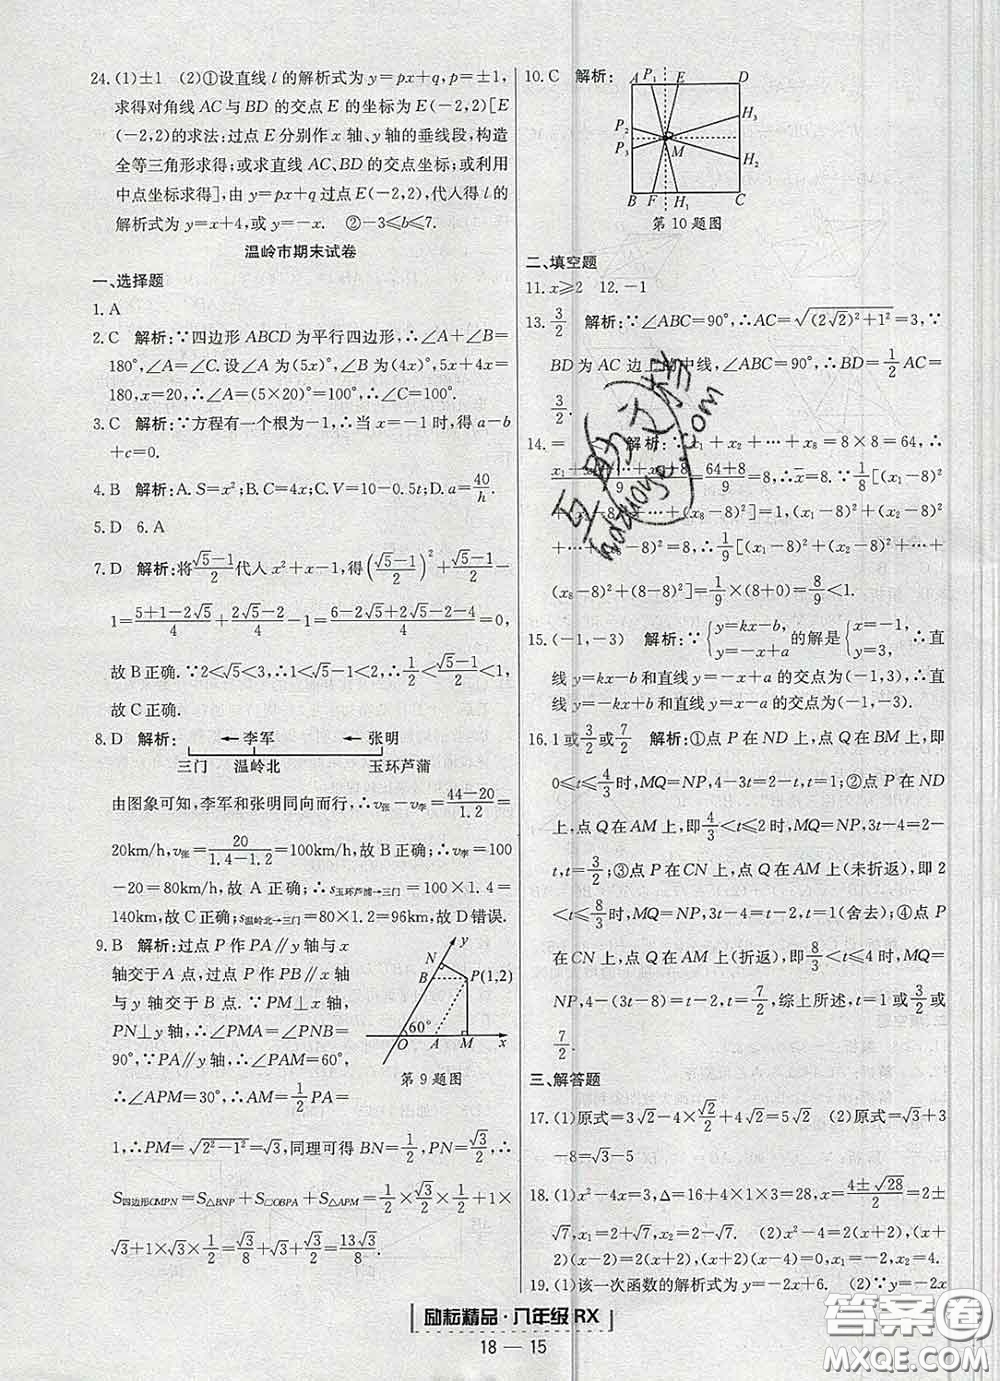 24. (1)±1 (2)①设直线 l 的解析式为 y=px+q, p=±1,
求得对角线 AC 与 BD 的交点 E 的坐标为 E(-2,2)[E
(-2,2)的求法:过点 E 分别作 x 轴、y 轴的垂线段,构造
全等三角形求得;或求直线 AC、BD 的交点坐标;或利用
中点坐标求得],由 y=px+q 过点 E(-2,2),代人得 l 的
解析式为 y=x+4,或 y=-x. ②-3⩽b⩽7.
温岭市期末试卷
一、选择题
1. A
2. C 解析:∵四边形 ABCD 为平行四边形,∴∠A+∠B=
180°,∠A=∠C.设∠A 为(5x)°,∠B 为(4x)°,5x+4x=
180,x=20,∴∠A=(5×20)°=100°,∴∠C=100°.
3. C 解析:∵方程有一个根为-1,∴当 x=-1 时,得 a-b
+c=0.
4. B 解析:A. S=x²;B. C=4x;C. V=10-0.5t;D. a=40/h.
5. D 6. A
7. D 解析:将(√5-1)/2代人 x²+x-1,得((√5-1)/2)²+(√5-1)/2-
1=(5+1-2√5)/4+(2√5-2)/4-1=(6-2√5+2√5-2-4)/4=0,
故 B 正确.∵2<√5<3,∴1<√5-1<2,∴1/2<(√5-1)/2<1,
故 C 正确.
8. D 解析: ←李军 ←张明
三门 温岭北 玉环芦蒲
由图象可知,李军和张明同向而行,∴v张-v李=(44-20)/1.2=
20km/h,v张=20/(1.4-1.2)=100km/h,∴v李=100
-20=80km/h,故 A 正确;∴s玉环芦蒲→三门=100×1.4=
140km,故 C 正确;s温岭北→三门=80×1.2=96km,故 D 错误.
9. B 解析:过点 P 作 PA∥y 轴与 x
轴交于 A 点,过点 P 作 PB∥x 轴
与 y 轴交于 B 点.∵PM⊥x 轴,
PN⊥y 轴,∴∠PMA=∠PNB=
90°,∵PA∥y 轴,∴∠PAM=60°,
∴∠APM=30°,∴AM=1/2PA=
y N B P(1,2) 60° O A M x
第 9 题图
1,∴PM=√(2²-1²)=√3,同理可得 BN=1/2,PN=√3/2,∴
S四边形OMPN=S△BNP+S□OBPA+S△APM=1/2×√3/2×1/2+1×
√3+1×√3×1/2=√3/8+√3+√3/2=13√3/8.
10. C 解析:
A P₁ E D H₃ P₂ P₃ M H₂ B F H₁ C
第 10 题图
二、填空题
11. x⩾2 12. -1
13. 3/2 解析:∵∠ABC=90°,∴AC=√((2√2)²+1²)=3,∵
BD 为 AC 边上的中线,∠ABC=90°,∴BD=1/2AC=
3/2.
14. = < 解析:∵x₁+x₂+…+x₈=8×8=64,∴
(x₁+x₂+…+x₈+8)/9=(64+8)/9=8,∴x̄=8.∵1/8[(x₁-8)²
+(x₂-8)²+…+(x₈-8)²]=1,∴(x₁-8)²+(x₂-8)²
+…+(x₈-8)²=8,∴1/9[(x₁-8)²+(x₂-8)²+…+
(x₈-8)²+(8-8)²]=1/9×(8+0)=8/9<1.
15. (-1,-3) 解析:∵{y=kx-b, y=-x+a 的解是{x=-1, y=3, ∴直
线 y=kx-b 和直线 y=-x+a 的交点为(-1,3),∴直
线 y=-kx+b 和直线 y=x-a 的交点为(-1,-3).
16. 1 或3/2或7/2 解析:①点 P 在 ND 上,点 Q 在 BM 上,即
0⩽t⩽4/3时,MQ=NP,4-3t=2-t,t=1;②点 P 在 ND
上,点 Q 在 AM 上,即4/3<t⩽2 时,MQ=NP,3t-4=2-
t,t=3/2;③点 P 在 CN 上,点 Q 在 AM 上(未折返),即 2
<t⩽8/3时,MQ=NP,3t-4=t-2,t=1(舍去);④点 P
在 CN 上,点 Q 在 AM 上(折返),即8/3<t⩽4 时,MQ=
NP,4-(3t-8)=t-2,t=7/2,综上所述,t=1 或3/2或
7/2.
三、解答题
17. (1)原式=3√2-4×√2/2+4√2=5√2 (2)原式=√3+3
-8=√3-5
18. (1)x²-4x=3,Δ=16+4×1×3=28,x=(4±√28)/2=2±
√7,x₁=2+√7,x₂=2-√7. (2)x²-4=2(x+2),(x+
2)(x-2)=2(x+2),(x+2)(x-4)=0,x₁=-2,x₂=4.
19. (1)该一次函数的解析式为 y=-2x+6. (2)∵y=-2x
励耘精品·八年级 RX
18 — 15
互助文档
hdzuoye.com
答案圈
MXQE.COM